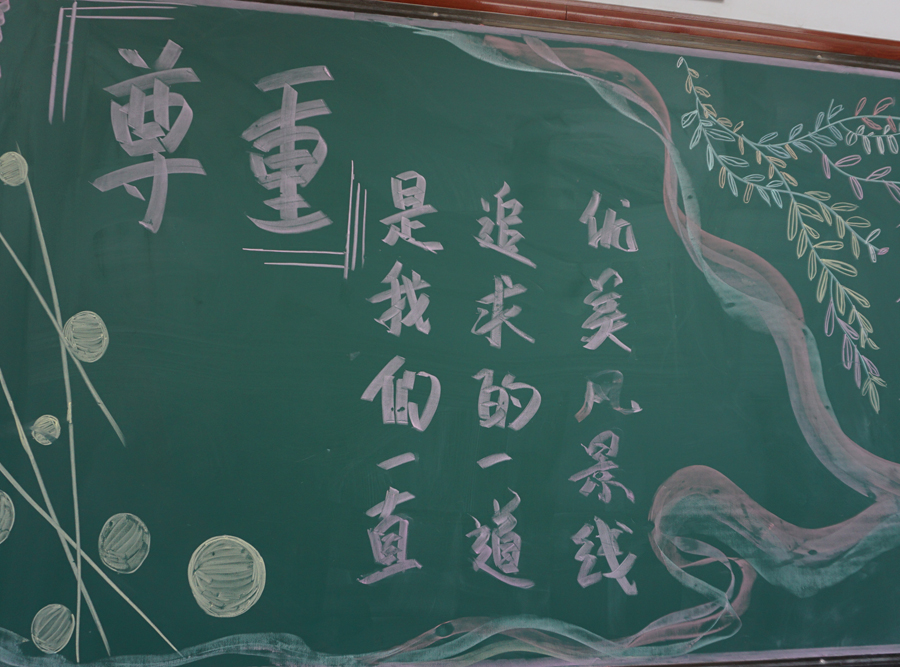 尊重
是我们一直
追求的一道
优美风景线